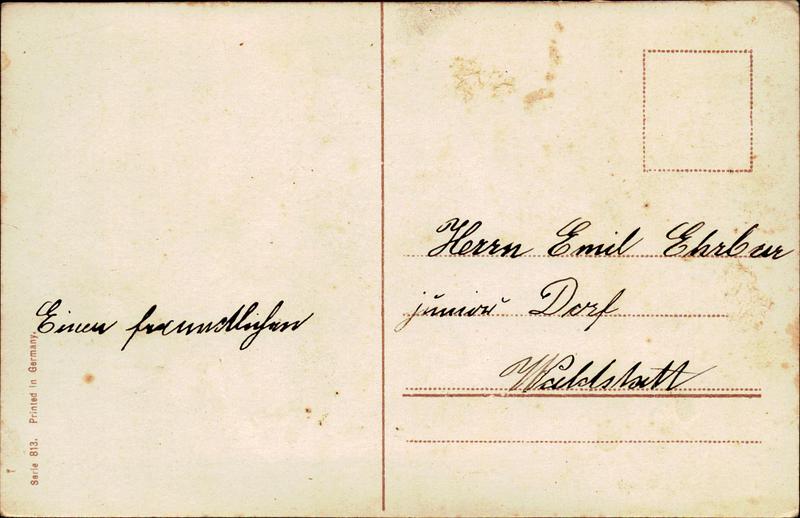 Einen freundlichen
Serie 813. Printed in Germany.
Herrn Emil Ehrbar
junior Dorf
Waldstatt